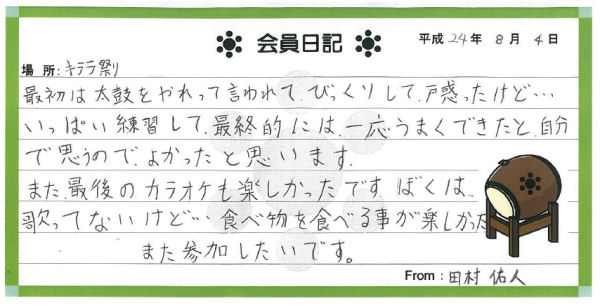 会員日記
平成 24年 8月 4日
場所: キララ祭り
最初は太鼓をやれって言われて、びっくりして、戸惑ったけど…
いっぱい練習して、最終的には、一応うまくできたと、自分
で思うので、よかったと思います。
また、最後のカラオケも楽しかったです。ぼくは、
歌ってないけど…食べ物を食べる事が楽しかった
また参加したいです。
From: 田村 佑人